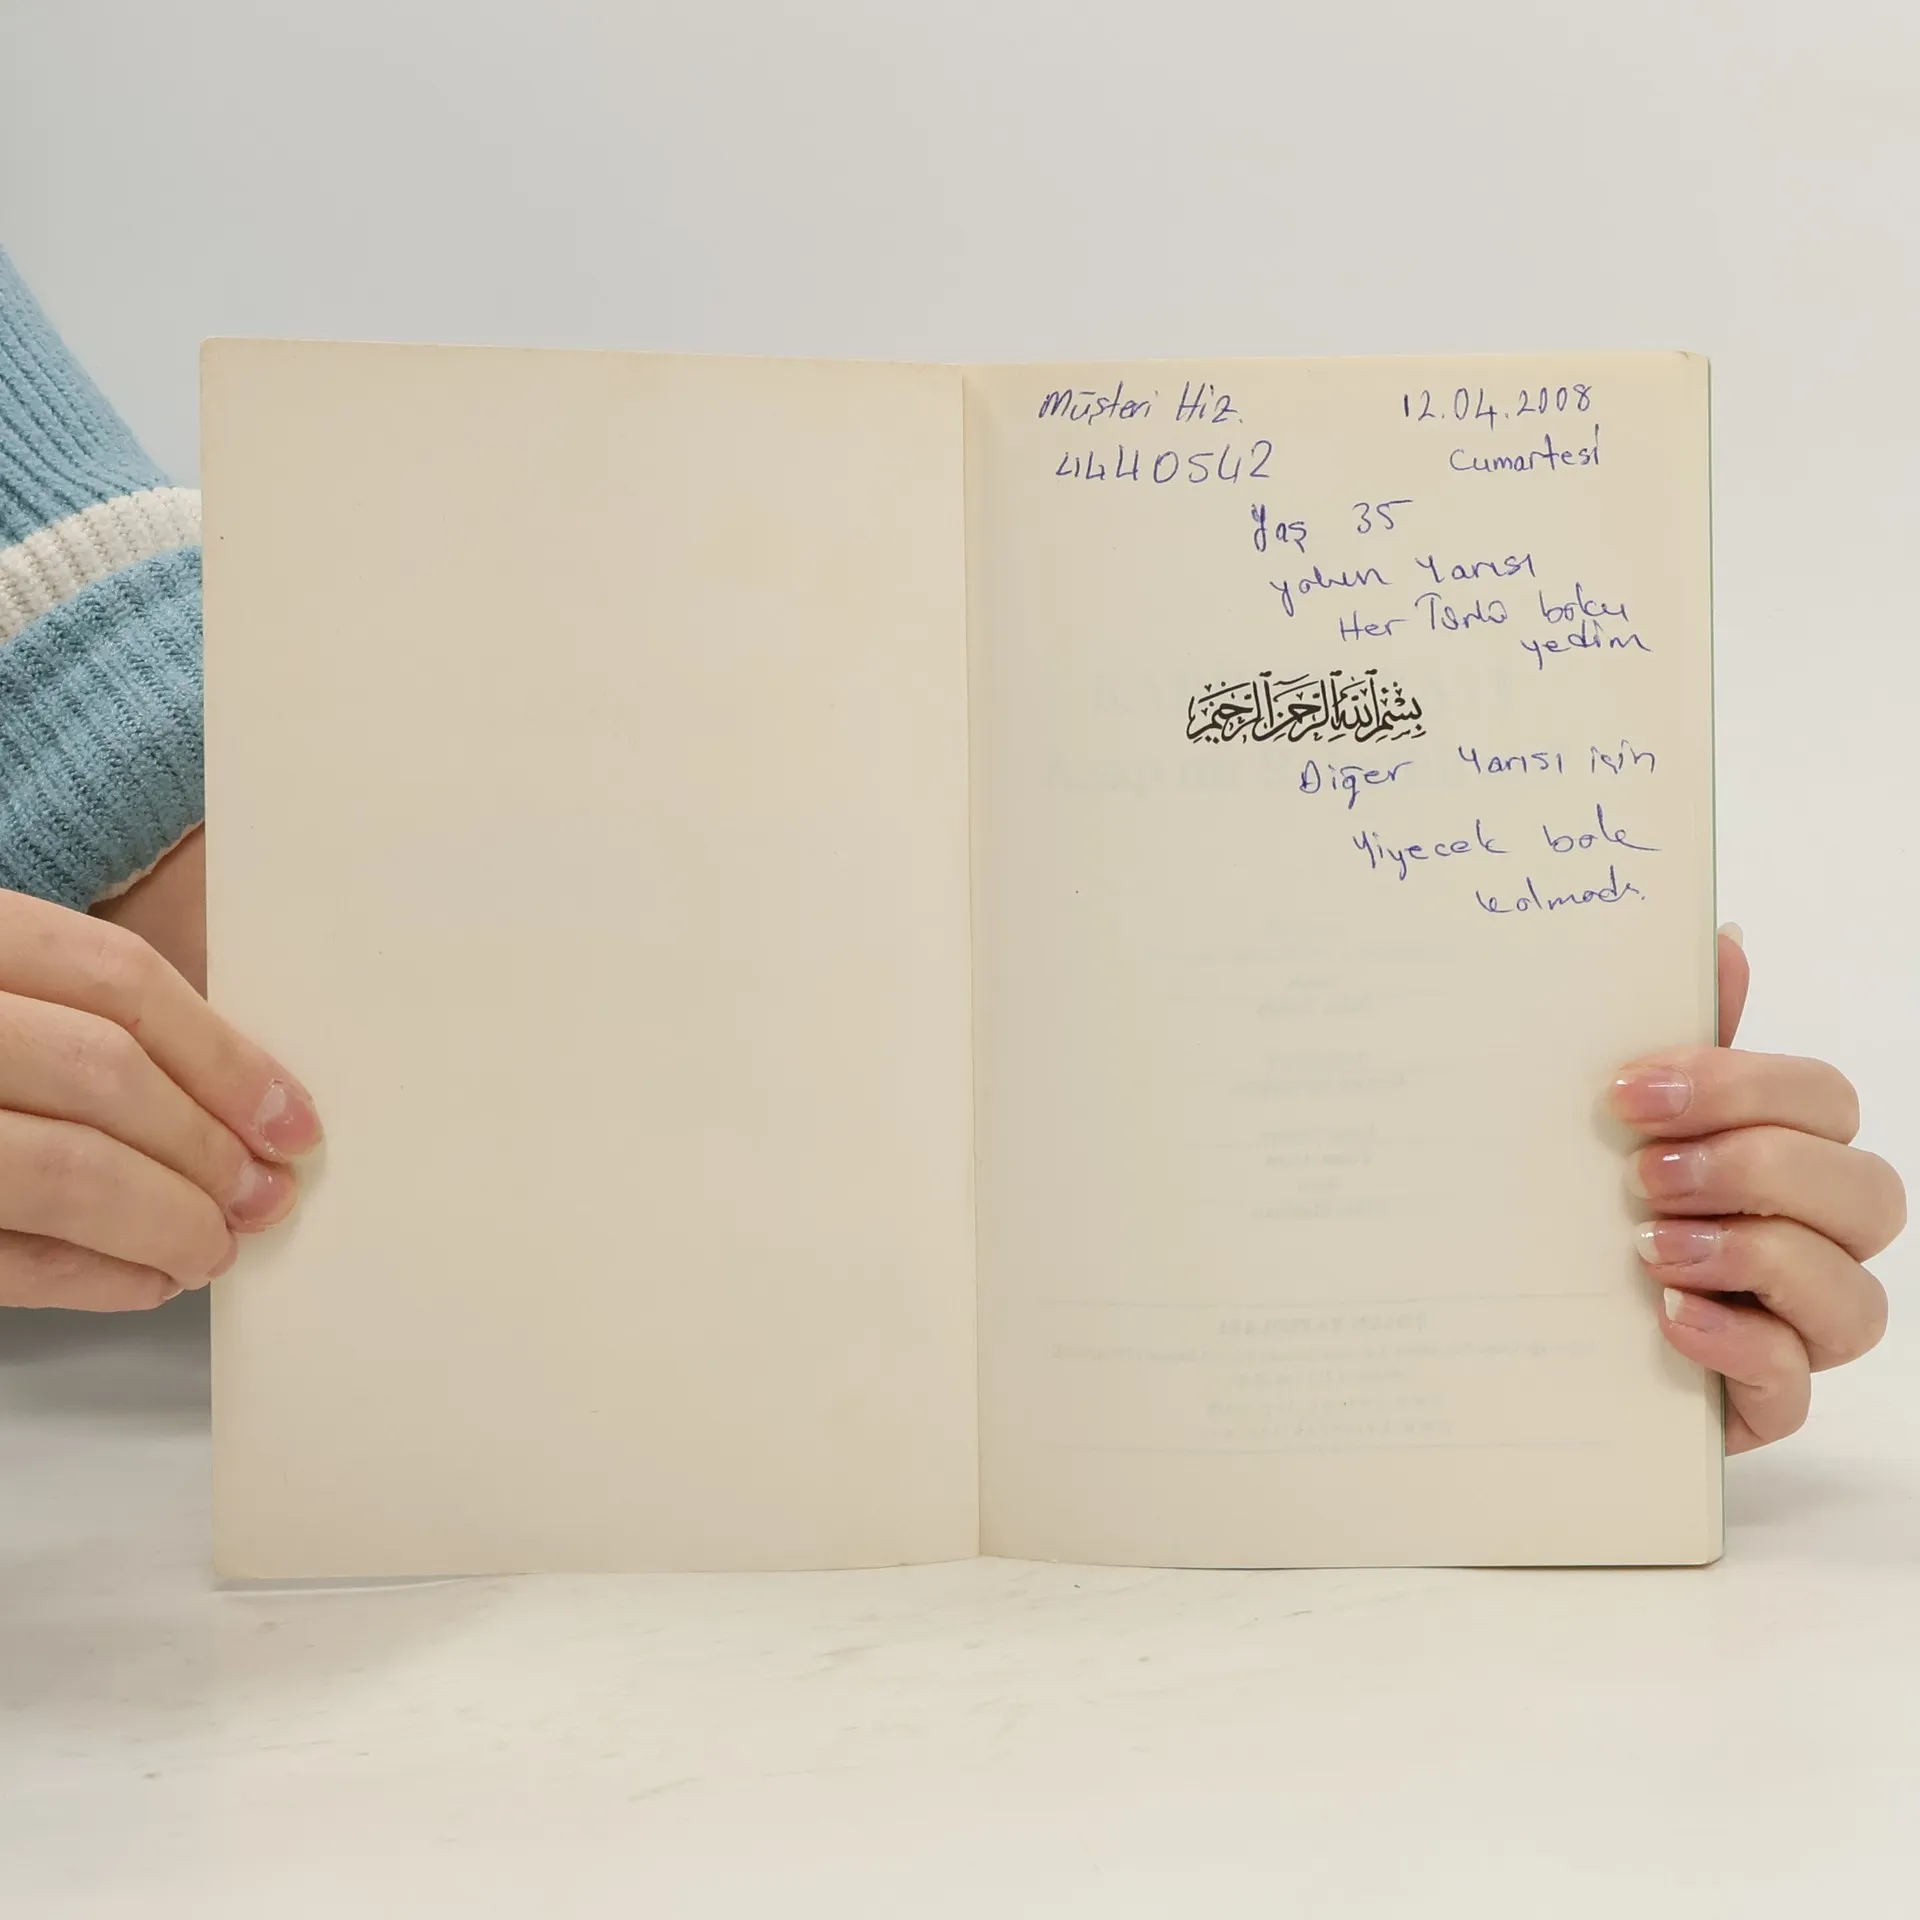 Müşteri Hiz.
4440542
12.04.2008
Cumartesi
Yaş 35
yolun Yarısı
Her Türlü boku
yedim
بِسْمِ ٱللَّهِ ٱلرَّحْمَٰنِ ٱلرَّحِيمِ
Diğer Yarısı için
Yiyecek bok
kalmadı.